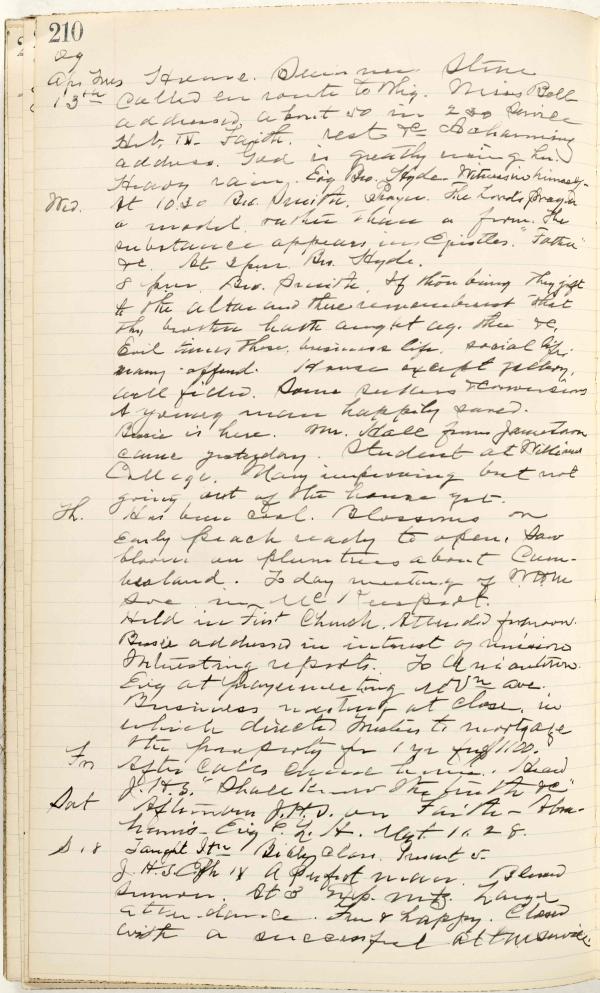 210
09
Apr Tues Home. Stone
13th Called en route to Miss Bell
addressed about 50 in 2 30 service
Heb. IV. Faith, rest &c A charming
address. God is greatly using her.
Heavy rain. Evg Bro. Hyde. Witness in himself.
Wed. At 10.30 Bro. Smith, Prayer. The Lords Prayer
a model rather than a form. The
substance appears in Epistles. "Father"
&c. At 2 pm Bro. Hyde.
8 pm. Bro. Smith, If thou bring thy gift
to the altar and there rememberest that
thy brother hath aught ag. thee &c.
Evil those, business life, social life.
many offend. House except gallery,
well filled. Some seekers & conversions
A young man happily saved.
Bessie is here. Mr. Hall from Jamestown
came yesterday. Student at Williams
College. Mary improving but not
going out of the house yet.
Th. Has been cool. Blossoms on
Early peach ready to open. Saw
bloom on plumtrees about Cum-
berland. Today meeting of
Soc in McKeesport.
Held in First Church. Attended forenoon.
Bessie addressed in interest of missions
Interesting reports.
Evg at prayermeeting ave.
Business meeting at close, in
which directed trustees to mortgage
the property for 1 yr
Fri After calls came home. Read
J.H.S. "Shall know the truth &c"
Sat Afternoon J.H.S. on Faith - Abra-
hams - Evg Mat. 11.28.
S 18 Taught Bible Class. Present 5.
J.H.S. A perfect man. Blessed
sermon. At 3 exp. mtg. Large
attendance. Free & happy. Closed
with a successful altar service.